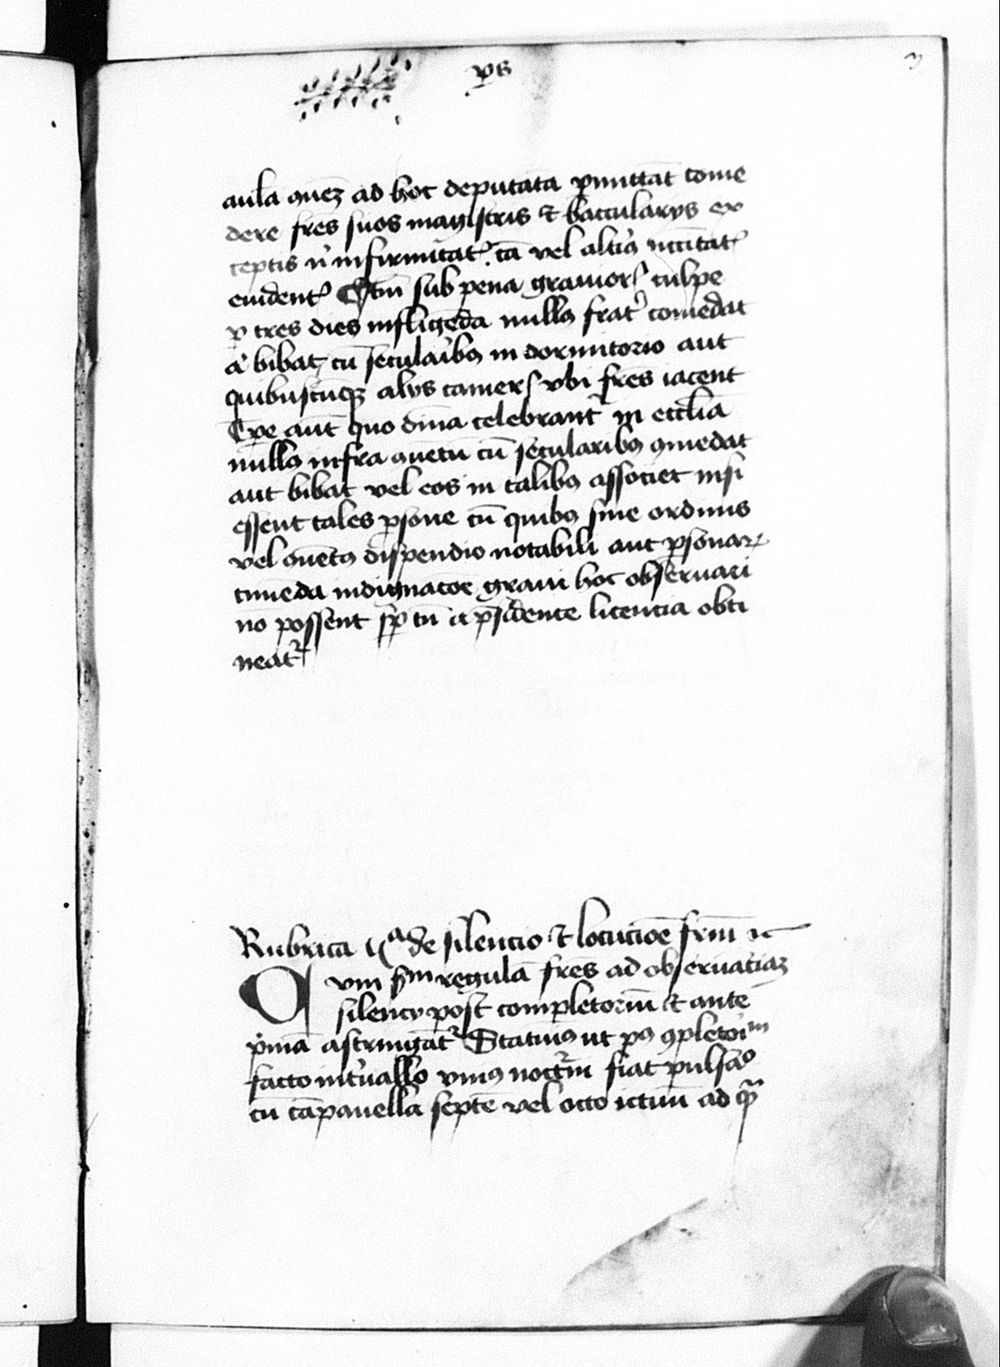 xps
aula quez ad hoc deputata pmittat come
dere fres suos magistris et baccularijs ex
ceptis n infirmitat. ca vel alti nccitat
euident Itm sub pena grauior culpe
p tres dies infligeda nullus frat comedat
a bibat cu seculaibus in dormitorio aut
quibuscuqz alijs camer vbi fres iacent
Tpe aut quo diuia celebrant in ecclia
nullus infra quetu cu secularibus comedat
aut bibat vel eos in talibus associet nisi
essent tales psone cu quibus sine ordinis
vel quetus dispendio notabili aut psonar
timeda indignacoe graui hoc obseruari
no possent sp tn a psidente licencia obti
neat
Rubrica de silencio et locucioe frm
Qvm scdm regula fres ad obseruaciaz
silencij post completoriu et ante
pma astringat Statuius ut pus completoim
facto intuallo vnius noctm fiat pulsao
cu capanella septe vel octo ictuu ad qm